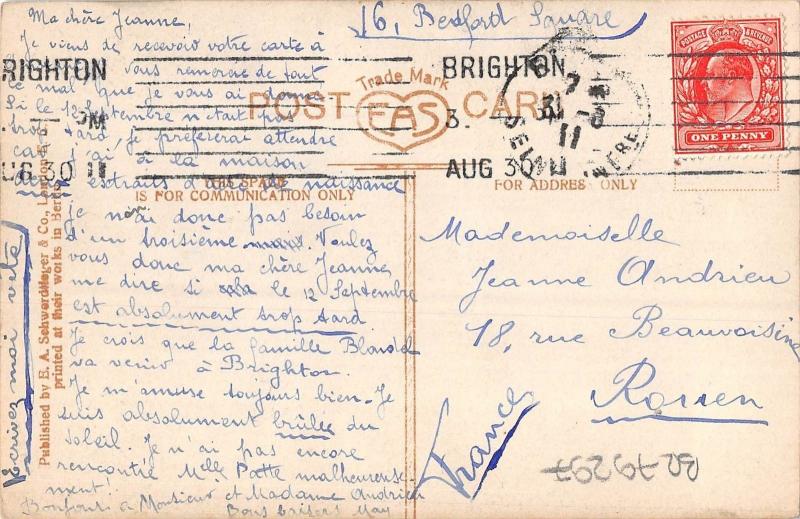 16, Bedford Square
Ma chère Jeanne,
Je viens de recevoir votre carte à
vous remercie de tout
le mal, que je vous ai donné
Si le 12 Septembre n'était pas
trop tard, je préfèrerai attendre
car j'ai à la maison
deux extraits d'acte de naissance
je n'ai donc pas besoin
d'un troisième Voulez
vous donc ma chère Jeanne
me dire si le 12 Septembre
est absolument trop tard
Je crois que la famille Blondel
va venir à Brighton.
Je m'amuse toujours bien. Je
suis absolument brûlée du
soleil. Je n'ai pas encore
rencontré Mlle Patte malheureuse-
ment!
Bonjour à Monsieur et Madame Andrieu
Bons baisers May
Ecrivez moi vite
RIGHTON
PM
UG 30 11
BRIGHTON
3.
AUG 30 11
POSTAGE REVENUE
ONE PENNY
Trade Mark
EAS
POST CARD
THIS SPACE
IS FOR COMMUNICATION ONLY
FOR ADDRESS ONLY
Published by E. A. Schwerdtfeger & Co., London E.C.
printed at their works in Berlin
Mademoiselle
Jeanne Andrieu
18, rue Beauvoisine
Rouen
France